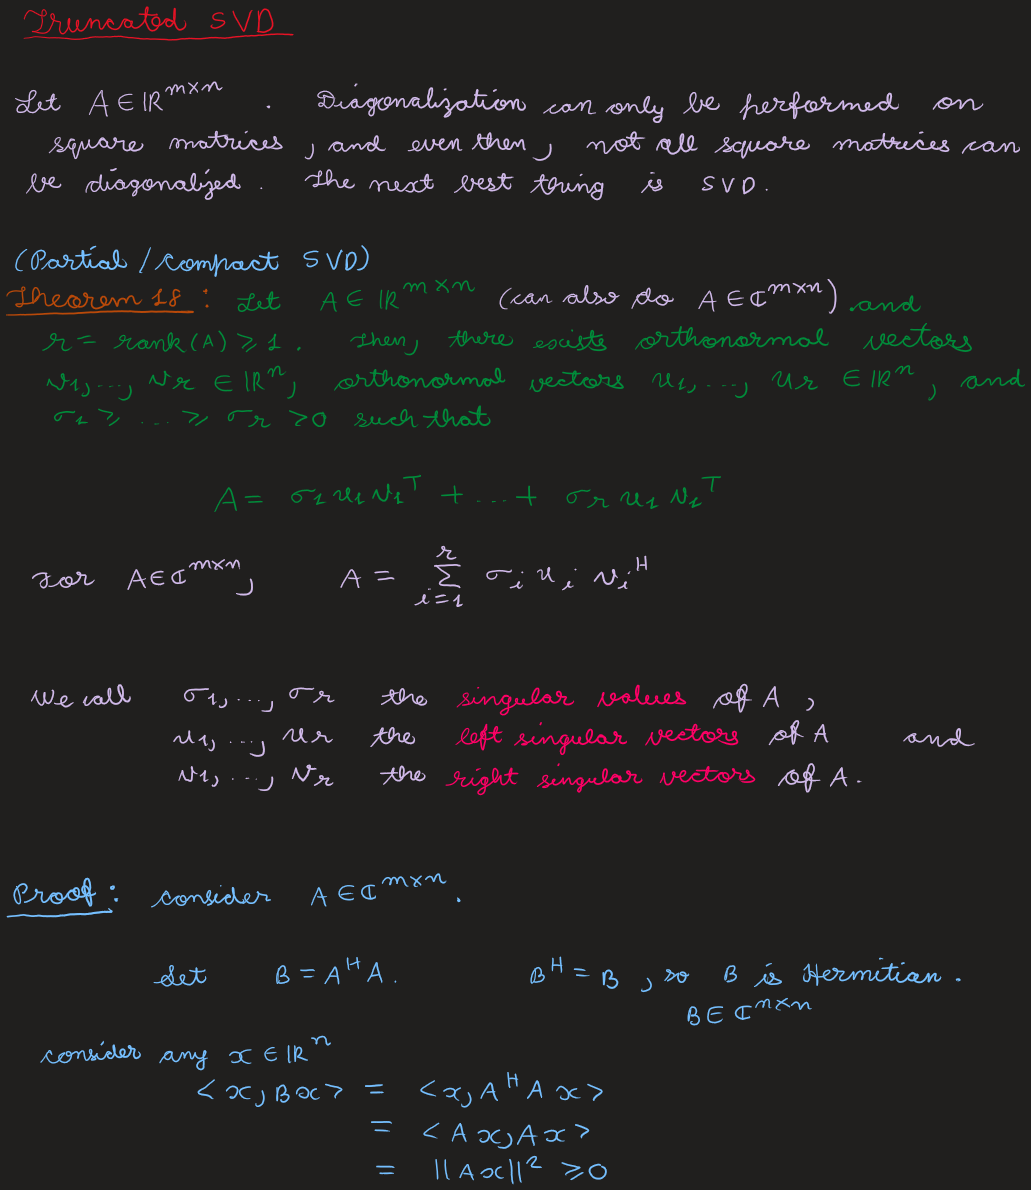 Truncated SVD
Let A ∈ ℝ^{m×n} . Diagonalization can only be performed on
square matrices, and even then, not all square matrices can
be diagonalized. The next best thing is SVD.
(Partial / Compact SVD)
Theorem 18: Let A ∈ ℝ^{m×n} (can also do A ∈ ℂ^{m×n}) and
r = rank(A) ≥ 1. Then, there exists orthonormal vectors
v₁, ..., vr ∈ ℝⁿ, orthonormal vectors u₁, ..., ur ∈ ℝⁿ, and
σ₁ ≥ ... ≥ σr > 0 such that
A = σ₁ u₁ v₁ᵀ + ... + σr u₁ v₁ᵀ
For A ∈ ℂ^{m×n}, A = ∑_{i=1}^{r} σᵢ uᵢ vᵢᴴ
We call σ₁, ..., σr the singular values of A,
u₁, ..., ur the left singular vectors of A and
v₁, ..., vr the right singular vectors of A.
Proof: consider A ∈ ℂ^{m×n}.
Let B = AᴴA. Bᴴ = B, so B is Hermitian.
B ∈ ℂ^{n×n}
consider any x ∈ ℝⁿ
<x, Bx> = <x, AᴴA x>
= <Ax, Ax>
= ||Ax||² ≥ 0